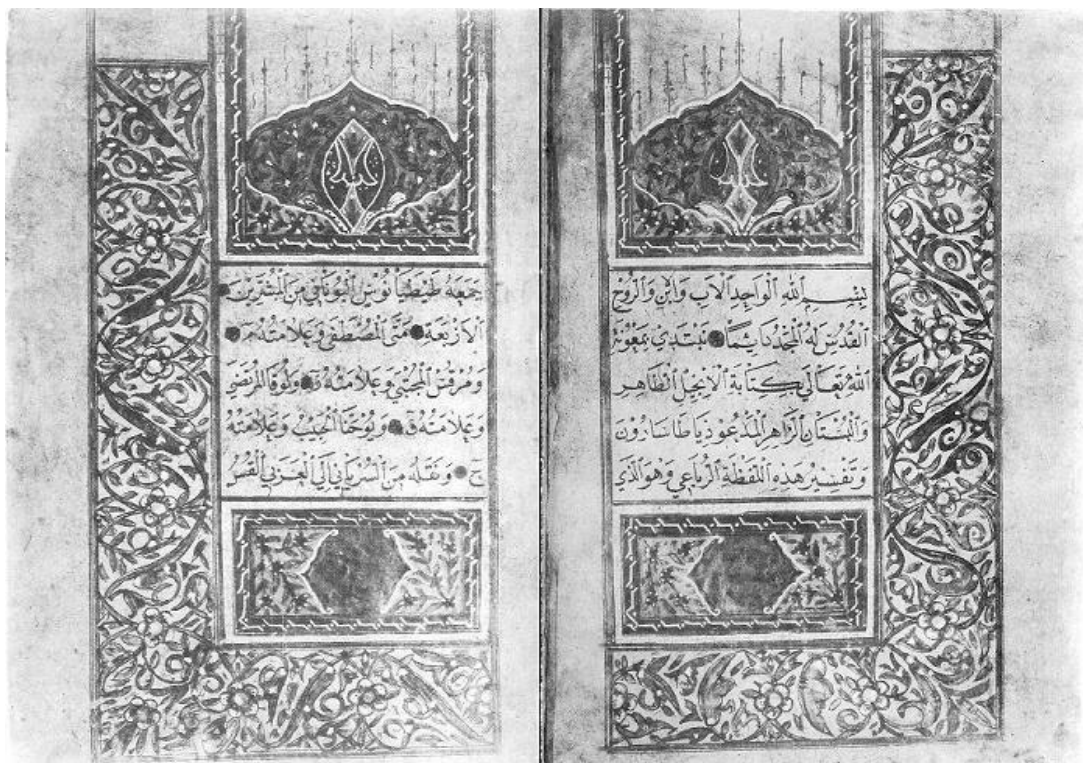 بسم الله الواحد الاب وابن والروح
القدس له المجد دائمًا نبتدي بمعونة
الله تعالى بكتابة الانجيل الطاهر
والبستان الزاهر المدعو ذياطاسارون
وتفسير هذه اللفظة الرباعي وهو الذي
جمعه طيطيانوس اليوناني من المبشرين
الاربعة متى المصطفى وعلامته م
ومرقس المجتبى وعلامته ر ولوقا المرتضى
وعلامته ق ويوحنا الحبيب وعلامته
ح ونقله من السرياني الى العربي القس